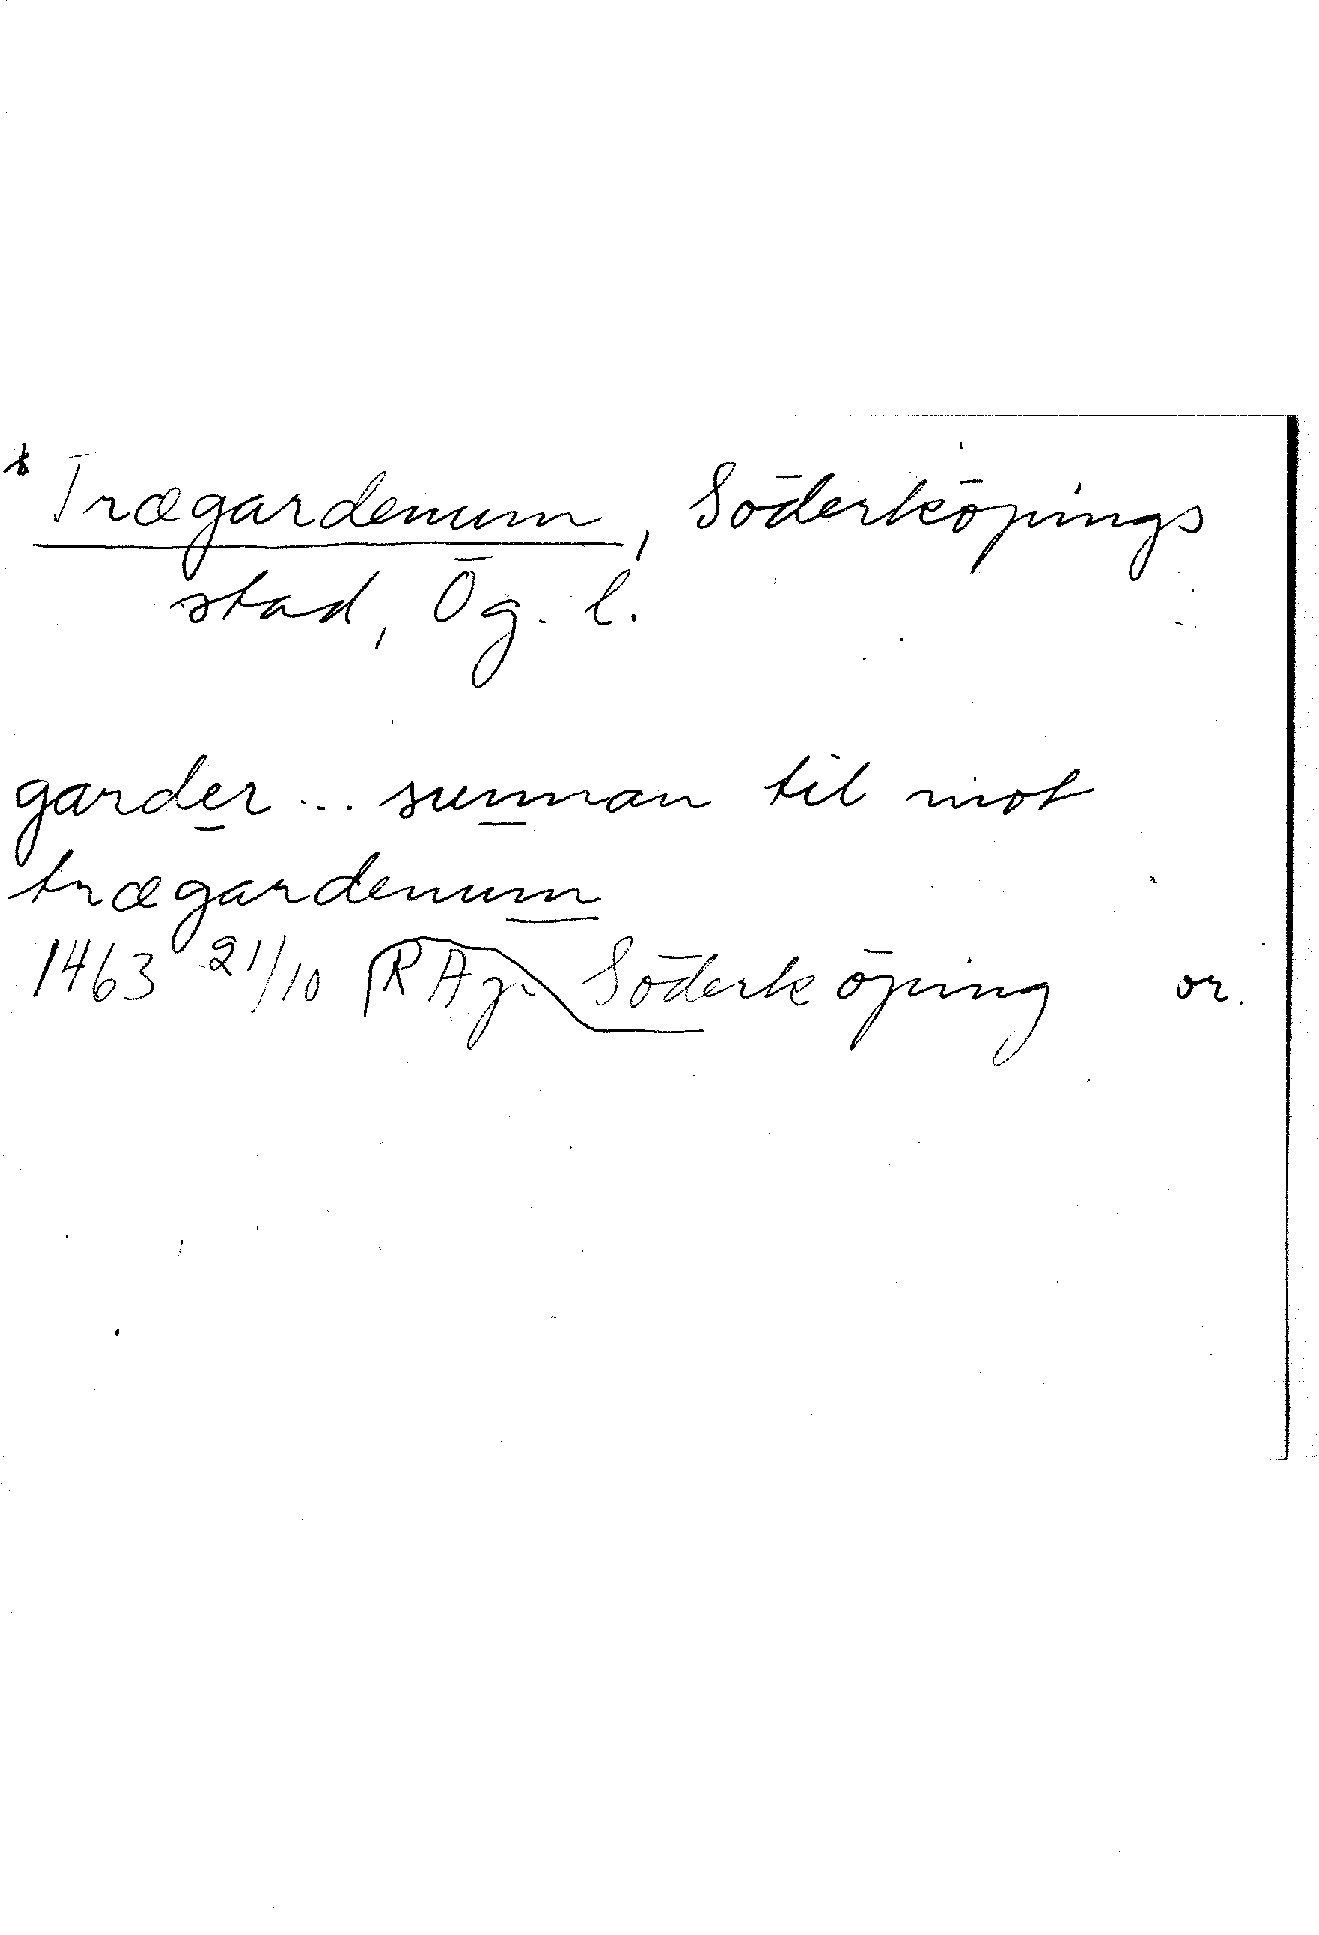 * Trægardenum, Söderköpings
stad, Ög. l.
garder... sunnan til mot
trægardenum
1463 21/10 RAp Söderköping or.